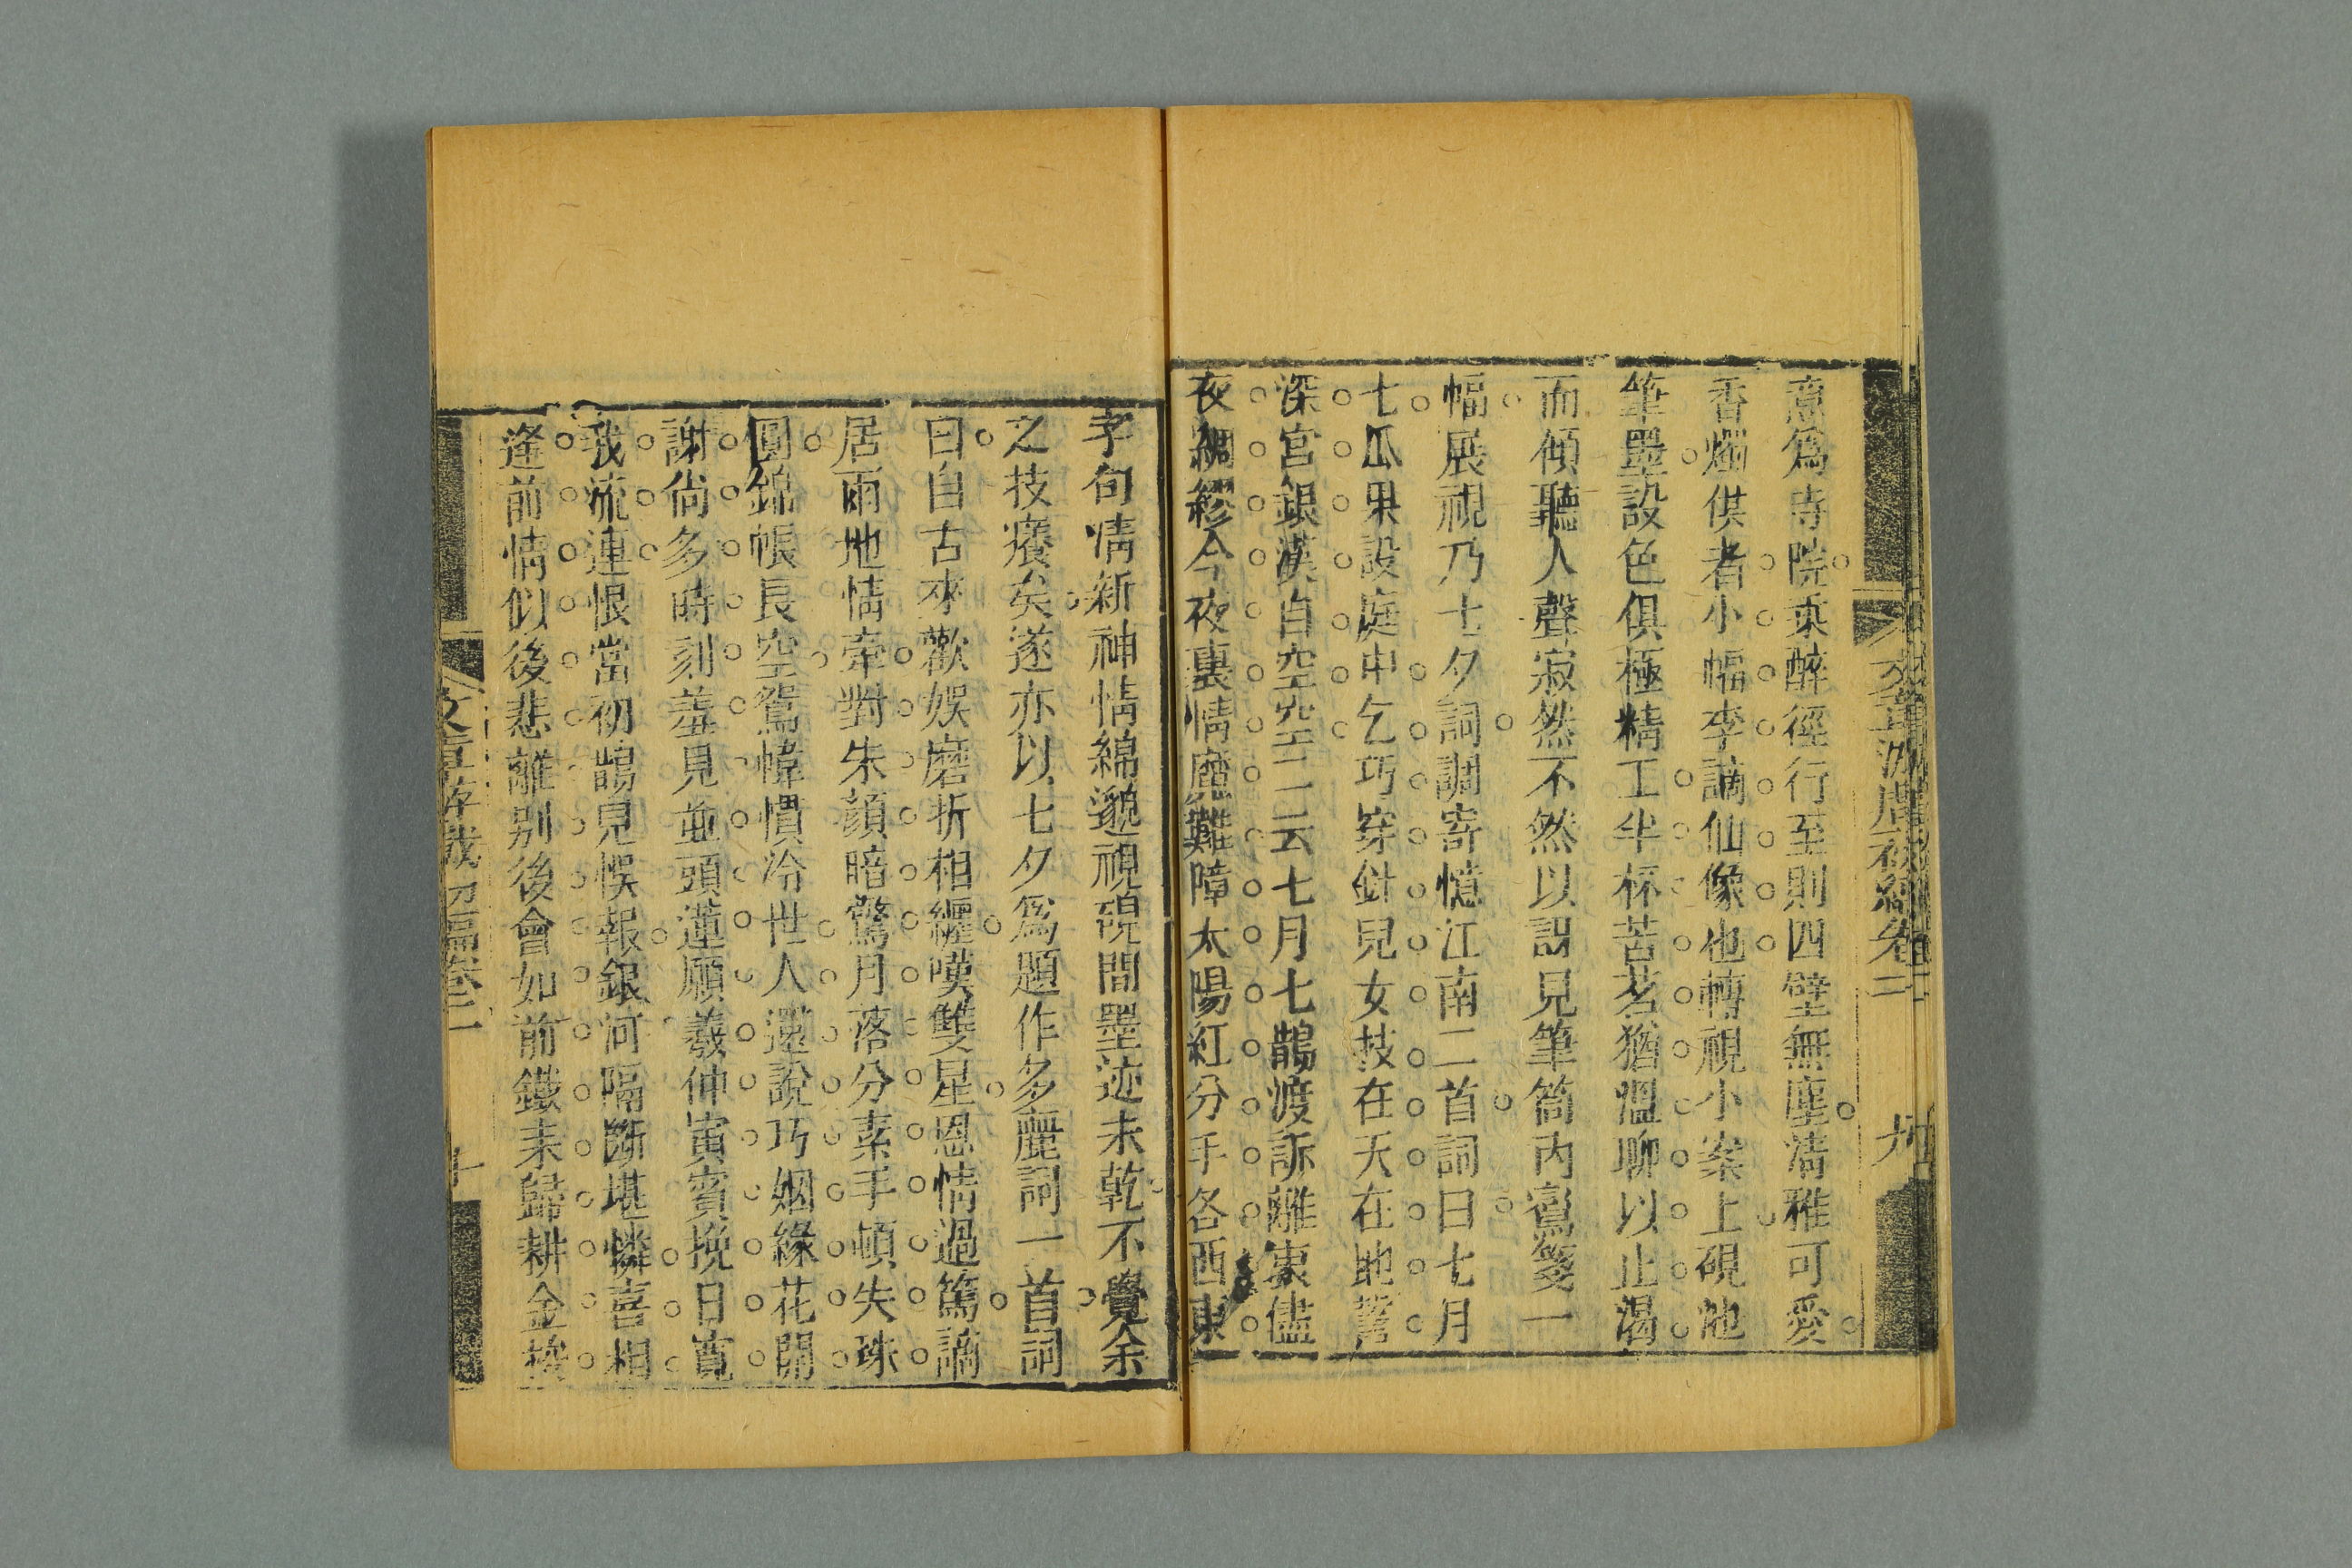 意為寺院乘醉徑行至則四壁無塵清雅可愛
香爐供者小幅李謫仙像也轉視小案上硯池
筆墨設色俱極精工半杯苦茗猶溫聊以止渴
而傾聽人聲寂然不然以訝見筆筒內鸞箋一
幅展視乃七夕詞調寄憶江南二首詞曰七月
七瓜果設庭中乞巧穿針兒女技在天在地誓
深宮銀漢自空空二云七月七鵲渡訴離衷儘
夜綢繆今夜裏情魔難障太陽紅分手各西東
卷二
九
字句清新神情綿邈視硯間墨迹未乾不覺余
之技癢矣遂亦以七夕為題作多麗詞一首詞
曰自古來歡娛磨折相纏嘆雙星恩情過篤謫
居兩地情牽對朱顏暗驚月落分素手頓失珠
圓錦帳長空鴛幃慣冷世人還說巧姻緣花開
謝尙多時刻羞見並頭蓮願羲仲寅賓挽日寛
我流連恨當初鵲兒悞報銀河隔斷堪憐喜相
逢前情似後悲離別後會如前鐵耒歸耕金梭
文章游戲初編卷二
十